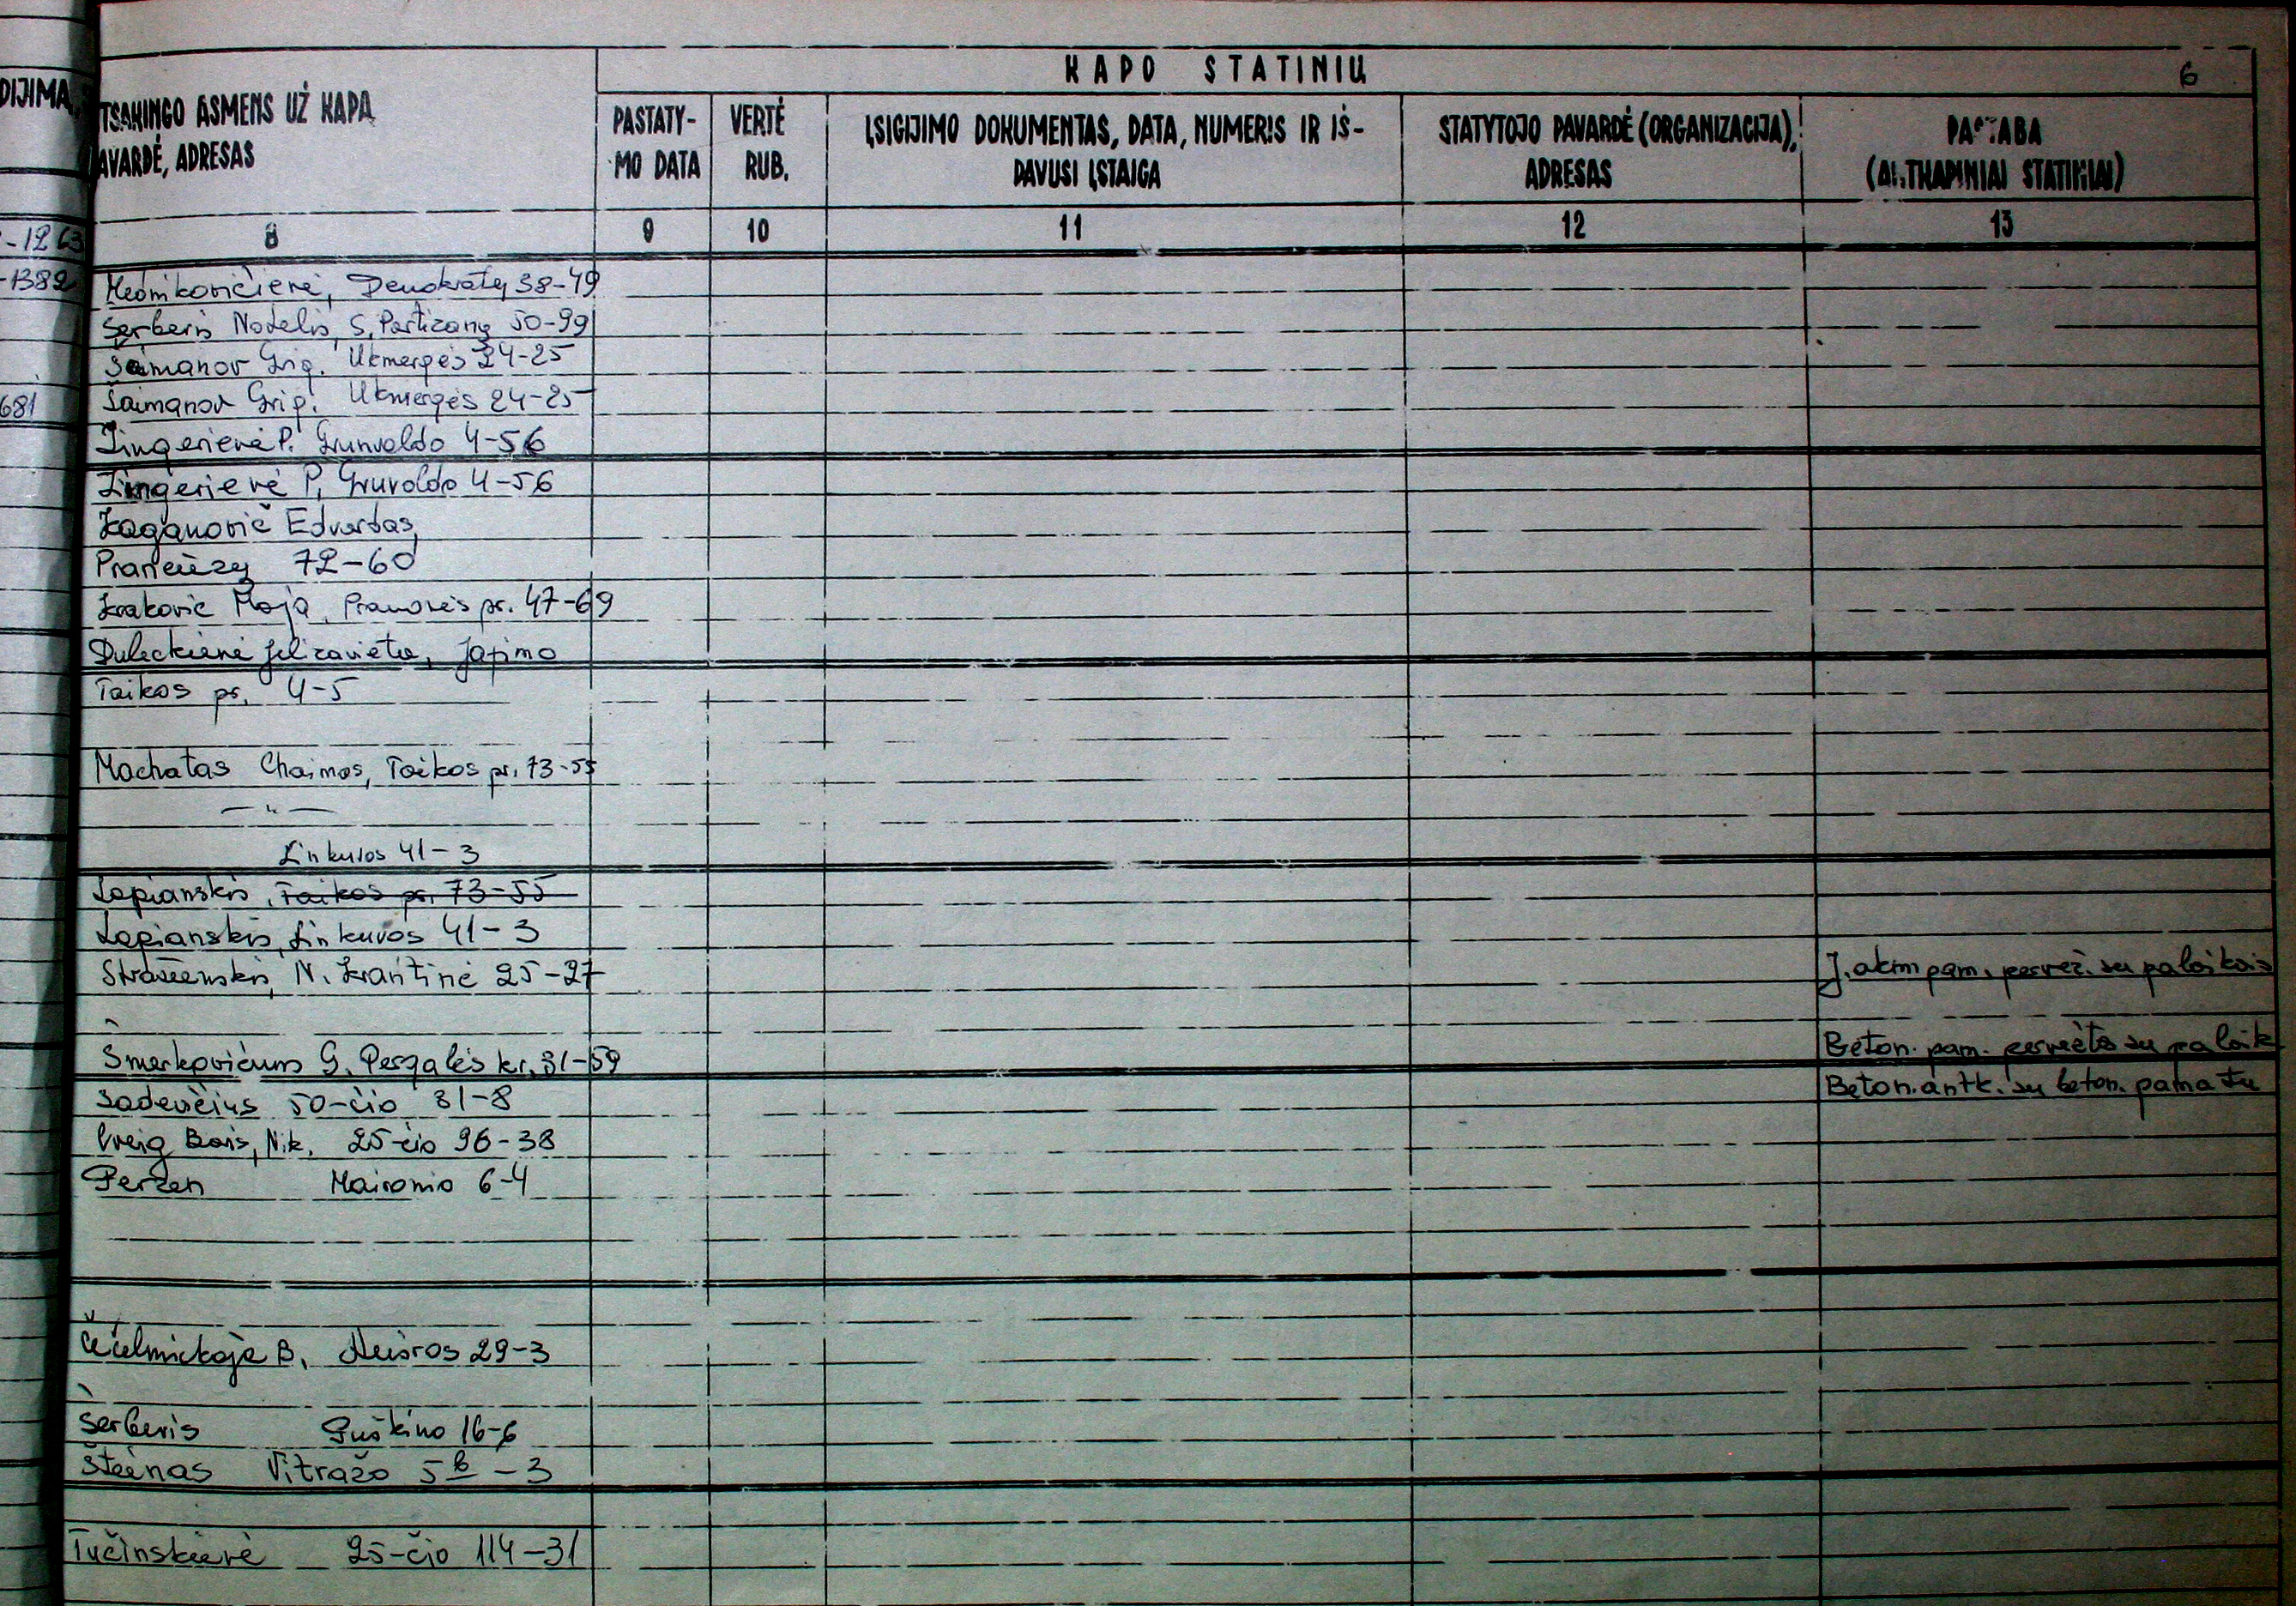 KAPO STATINIŲ
6
DIJIMA
TSAKINGO ASMENS UŽ KAPĄ
AVARDĖ, ADRESAS
PASTATY-
MO DATA
VERTĖ
RUB.
ĮSIGIJIMO DOKUMENTAS, DATA, NUMERIS IR IŠ-
DAVUSI ĮSTAIGA
STATYTOJO PAVARDĖ (ORGANIZACIJA),
ADRESAS
PASTABA
(ANTKAPINIAI STATINIAI)
8 9 10 11 12 13
-1263
-1382 Mednikovičienė, Demokratų 38-49
Serberis Nodelis, S. Partizanų 50-99
Šaimanov Grig. Ukmergės 24-25
681 Šaimanov Grig. Ukmergės 24-25
Zingerienė P. Grunvaldo 4-56
Zingerienė P. Gruvaldo 4-56
Kaganovič Edvardas,
Prancūzų 72-60
Krakovic Maja, Pramonės pr. 47-69
Duleckienė Jelizavieta, Jafimo
Taikos pr. 4-5
Machatas Chaimas, Taikos pr. 73-55
— " —
Linkuvos 41-3
Lapianskis, Taikos pr. 73-55
Lapianskis, Linkuvos 41-3
Strašenskis, N. Krantinė 25-27 J. akm pam. pervež. su palaikais
Šmerkovičius G. Pergalės kr. 31-59 Beton. pam. pervežta su palaik
Sadevičius 50-čio 31-8 Beton. antk. su beton. pamatu
Boris, Nik. 25-čio 96-38
Perzen Maironio 6-4
B. Aušros 29-3
Šerberis Puškino 16-6
Šteinas Vitražo 5 b - 3
Tučinskienė 25-čio 114-31